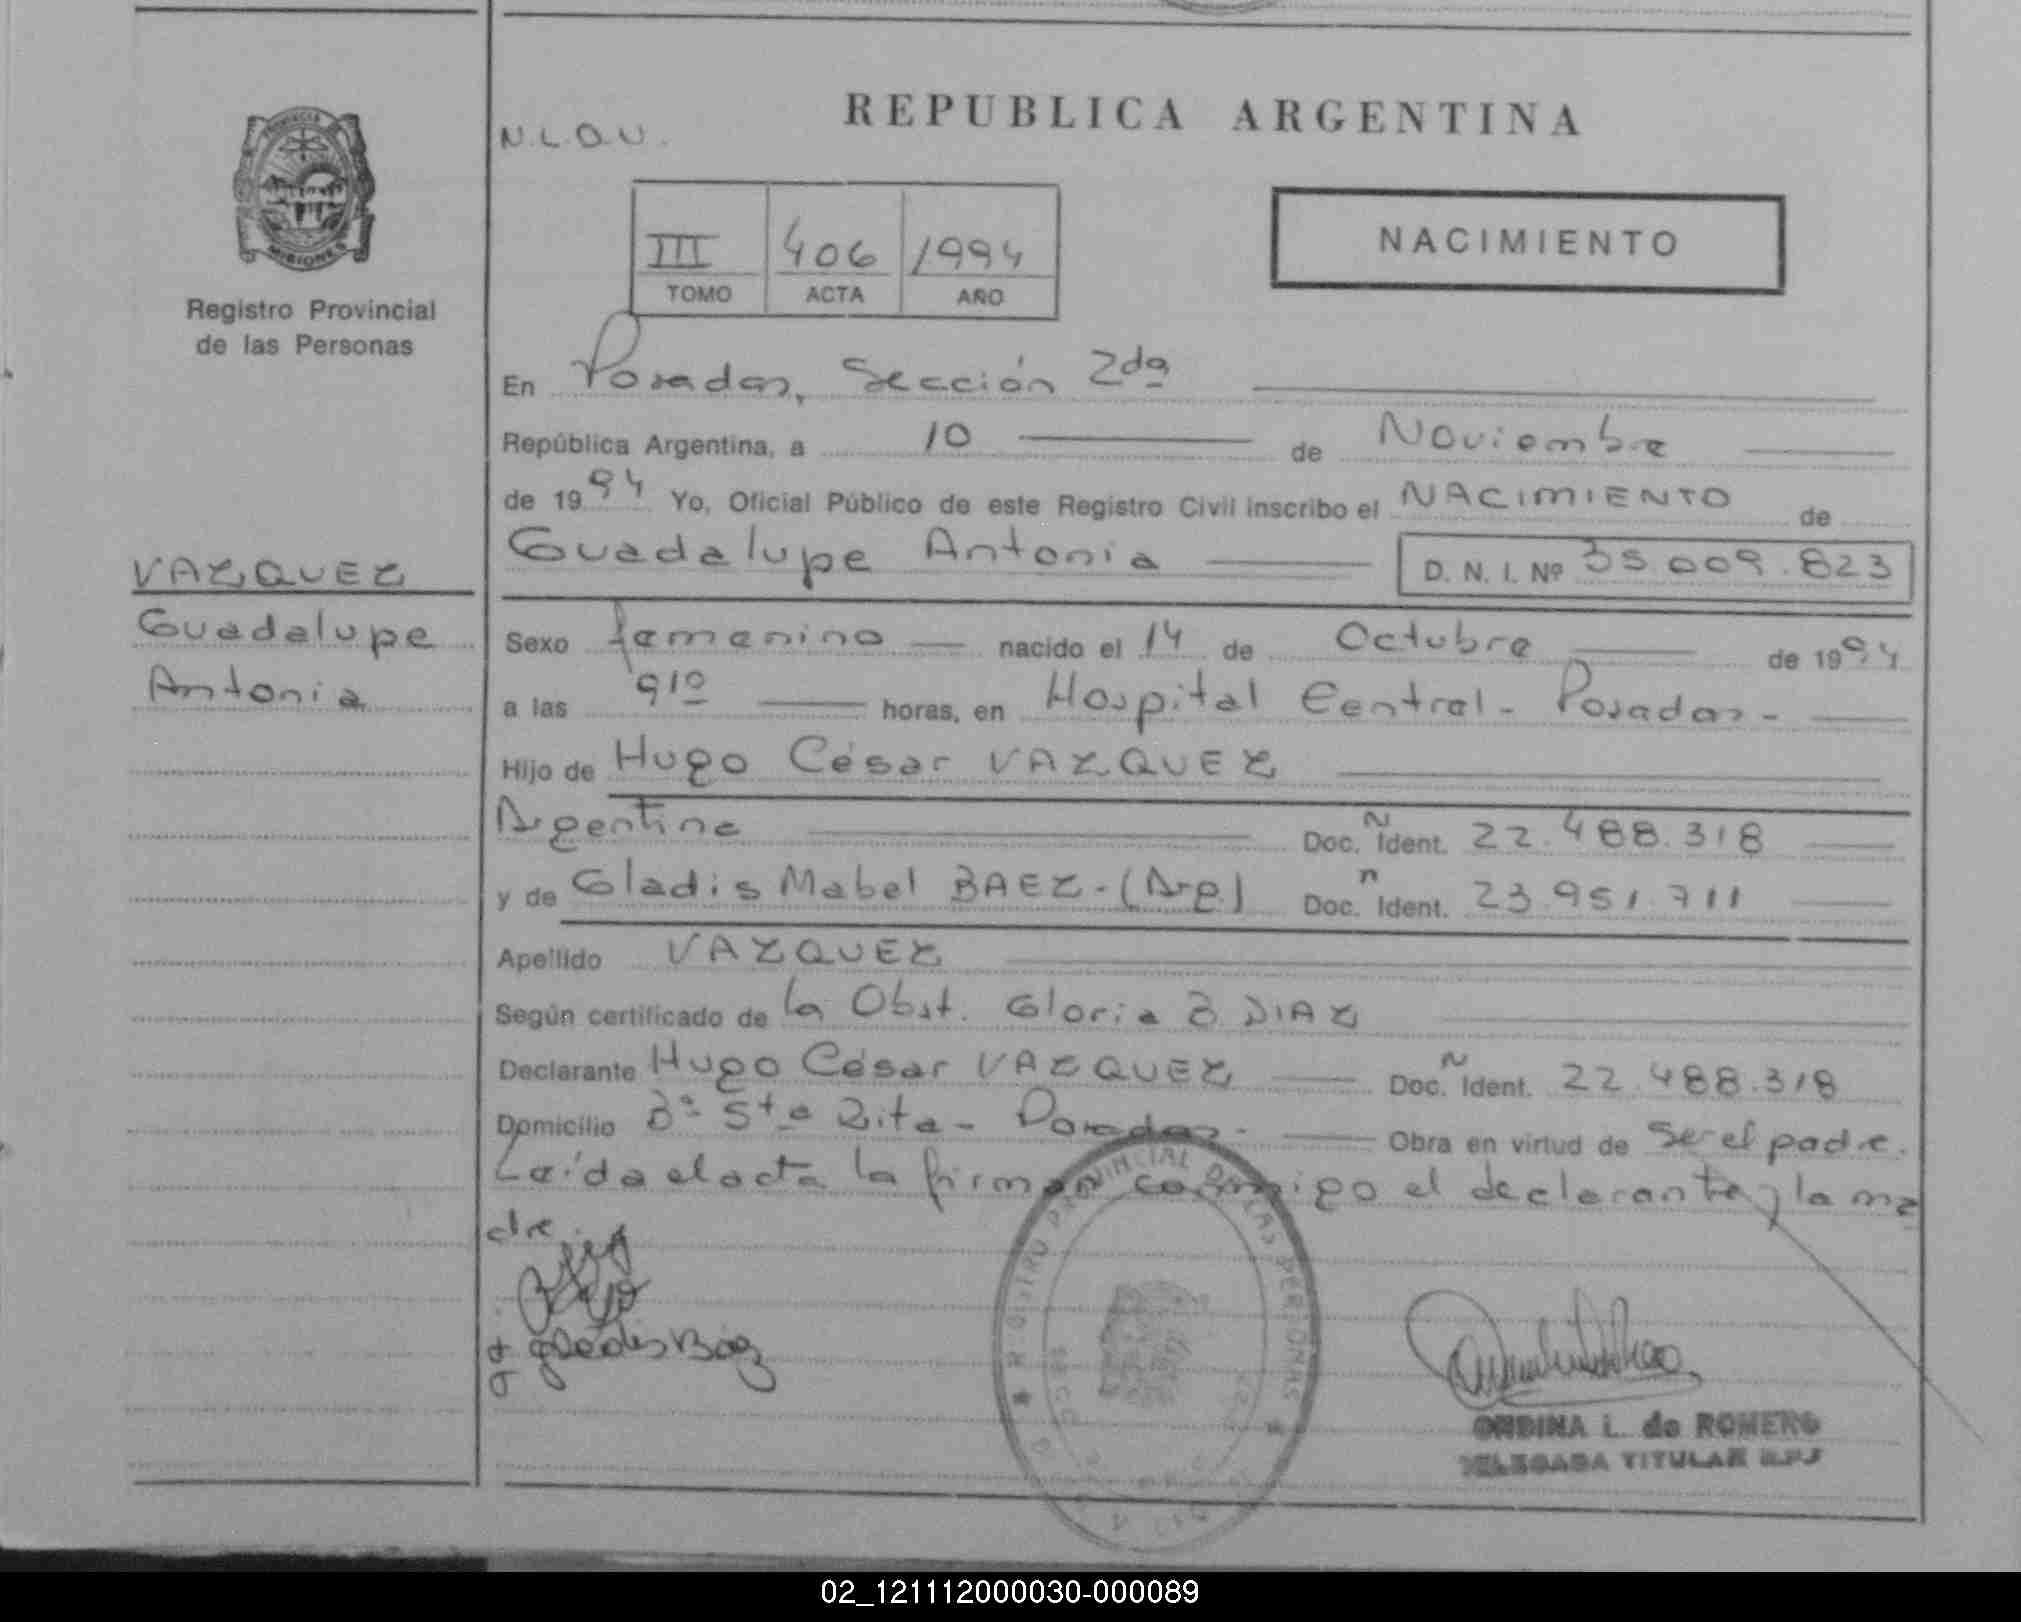 REPUBLICA ARGENTINA
N.L.O.U.
PROVINCIA DE
MISIONES
Registro Provincial
de las Personas
III 406 1994
TOMO ACTA AÑO
NACIMIENTO
En Posadas, Sección 2da
República Argentina, a 10 de Noviembre
de 1994 Yo, Oficial Público de este Registro Civil inscribo el NACIMIENTO de
Guadalupe Antonia D. N. I. Nº 35.009.823
VAZQUEZ
Guadalupe
Antonia
Sexo femenino nacido el 14 de Octubre de 1994
a las 9 10 horas, en Hospital Central - Posadas -
Hijo de Hugo César VAZQUEZ
Argentino Doc. N Ident. 22.488.318
y de Gladis Mabel BAEZ - (Arg) Doc. n Ident. 23.951.711
Apellido VAZQUEZ
Según certificado de la Obst. Gloria B DIAZ
Declarante Hugo César VAZQUEZ Doc. N Ident. 22.488.318
Domicilio Bº Sta Rita - Posadas - Obra en virtud de ser el padre.
Leída el acta la firman conmigo el declarante y la ma
dre.
Gladis Baez
REGISTRO PROVINCIAL DE LAS PERSONAS
ONDINA L. de ROMERO
DELEGADA TITULAR R.P.J
02_121112000030-000089